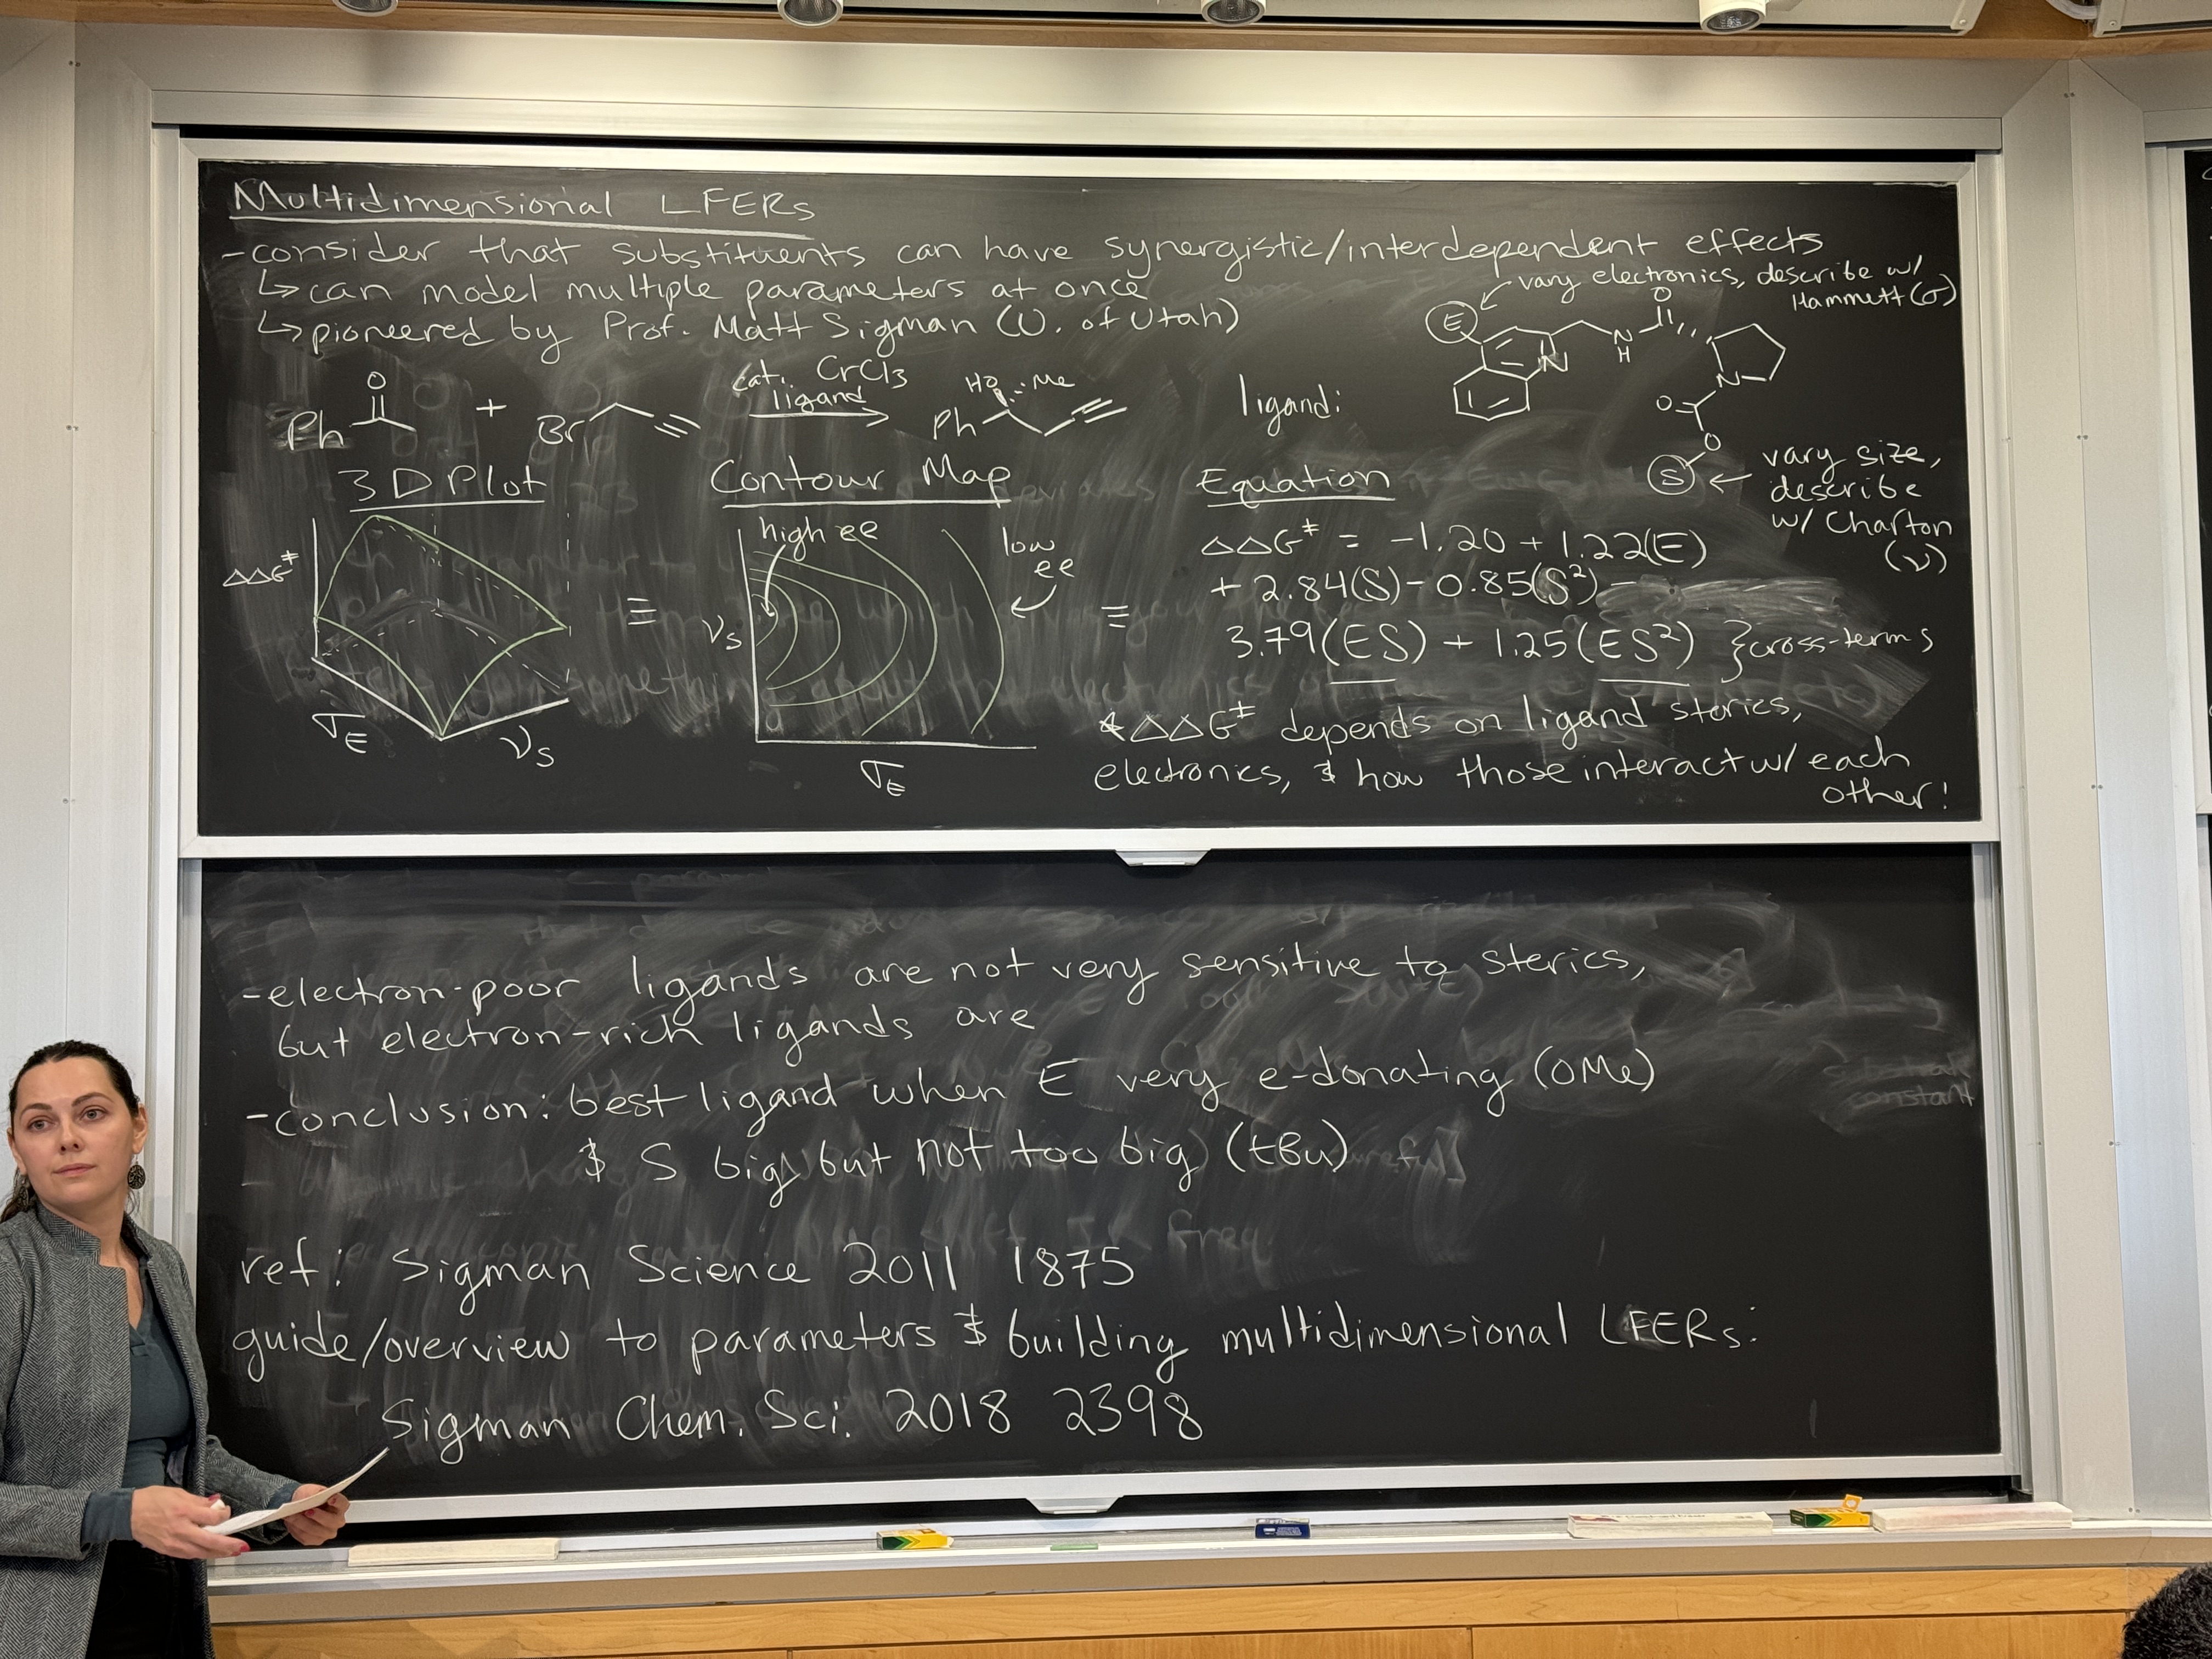 Multidimensional LFERs
- consider that substituents can have synergistic/interdependent effects
↳ can model multiple parameters at once
↳ pioneered by Prof. Matt Sigman (U. of Utah)
vary electronics, describe w/
Hammett (σ)
E
O
N
N
H
N
O
O
S
vary size,
describe
w/ Charton
(ν)
O
Ph
+
Br
cat. CrCl3
ligand
HO
Me
Ph
ligand:
3D Plot
ΔΔG‡
σE
νS
≡
Contour Map
high ee
low
ee
νS
σE
≡
Equation
ΔΔG‡ = -1.20 + 1.22(E)
+ 2.84(S) - 0.85(S²) -
3.79(ES) + 1.25(ES²) } cross-terms
* ΔΔG‡ depends on ligand sterics,
electronics, & how those interact w/ each
other!
- electron-poor ligands are not very sensitive to sterics,
but electron-rich ligands are
- conclusion: best ligand when E very e-donating (OMe)
& S big but not too big (tBu)
ref: Sigman Science 2011 1875
guide/overview to parameters & building multidimensional LFERs:
Sigman Chem. Sci. 2018 2398